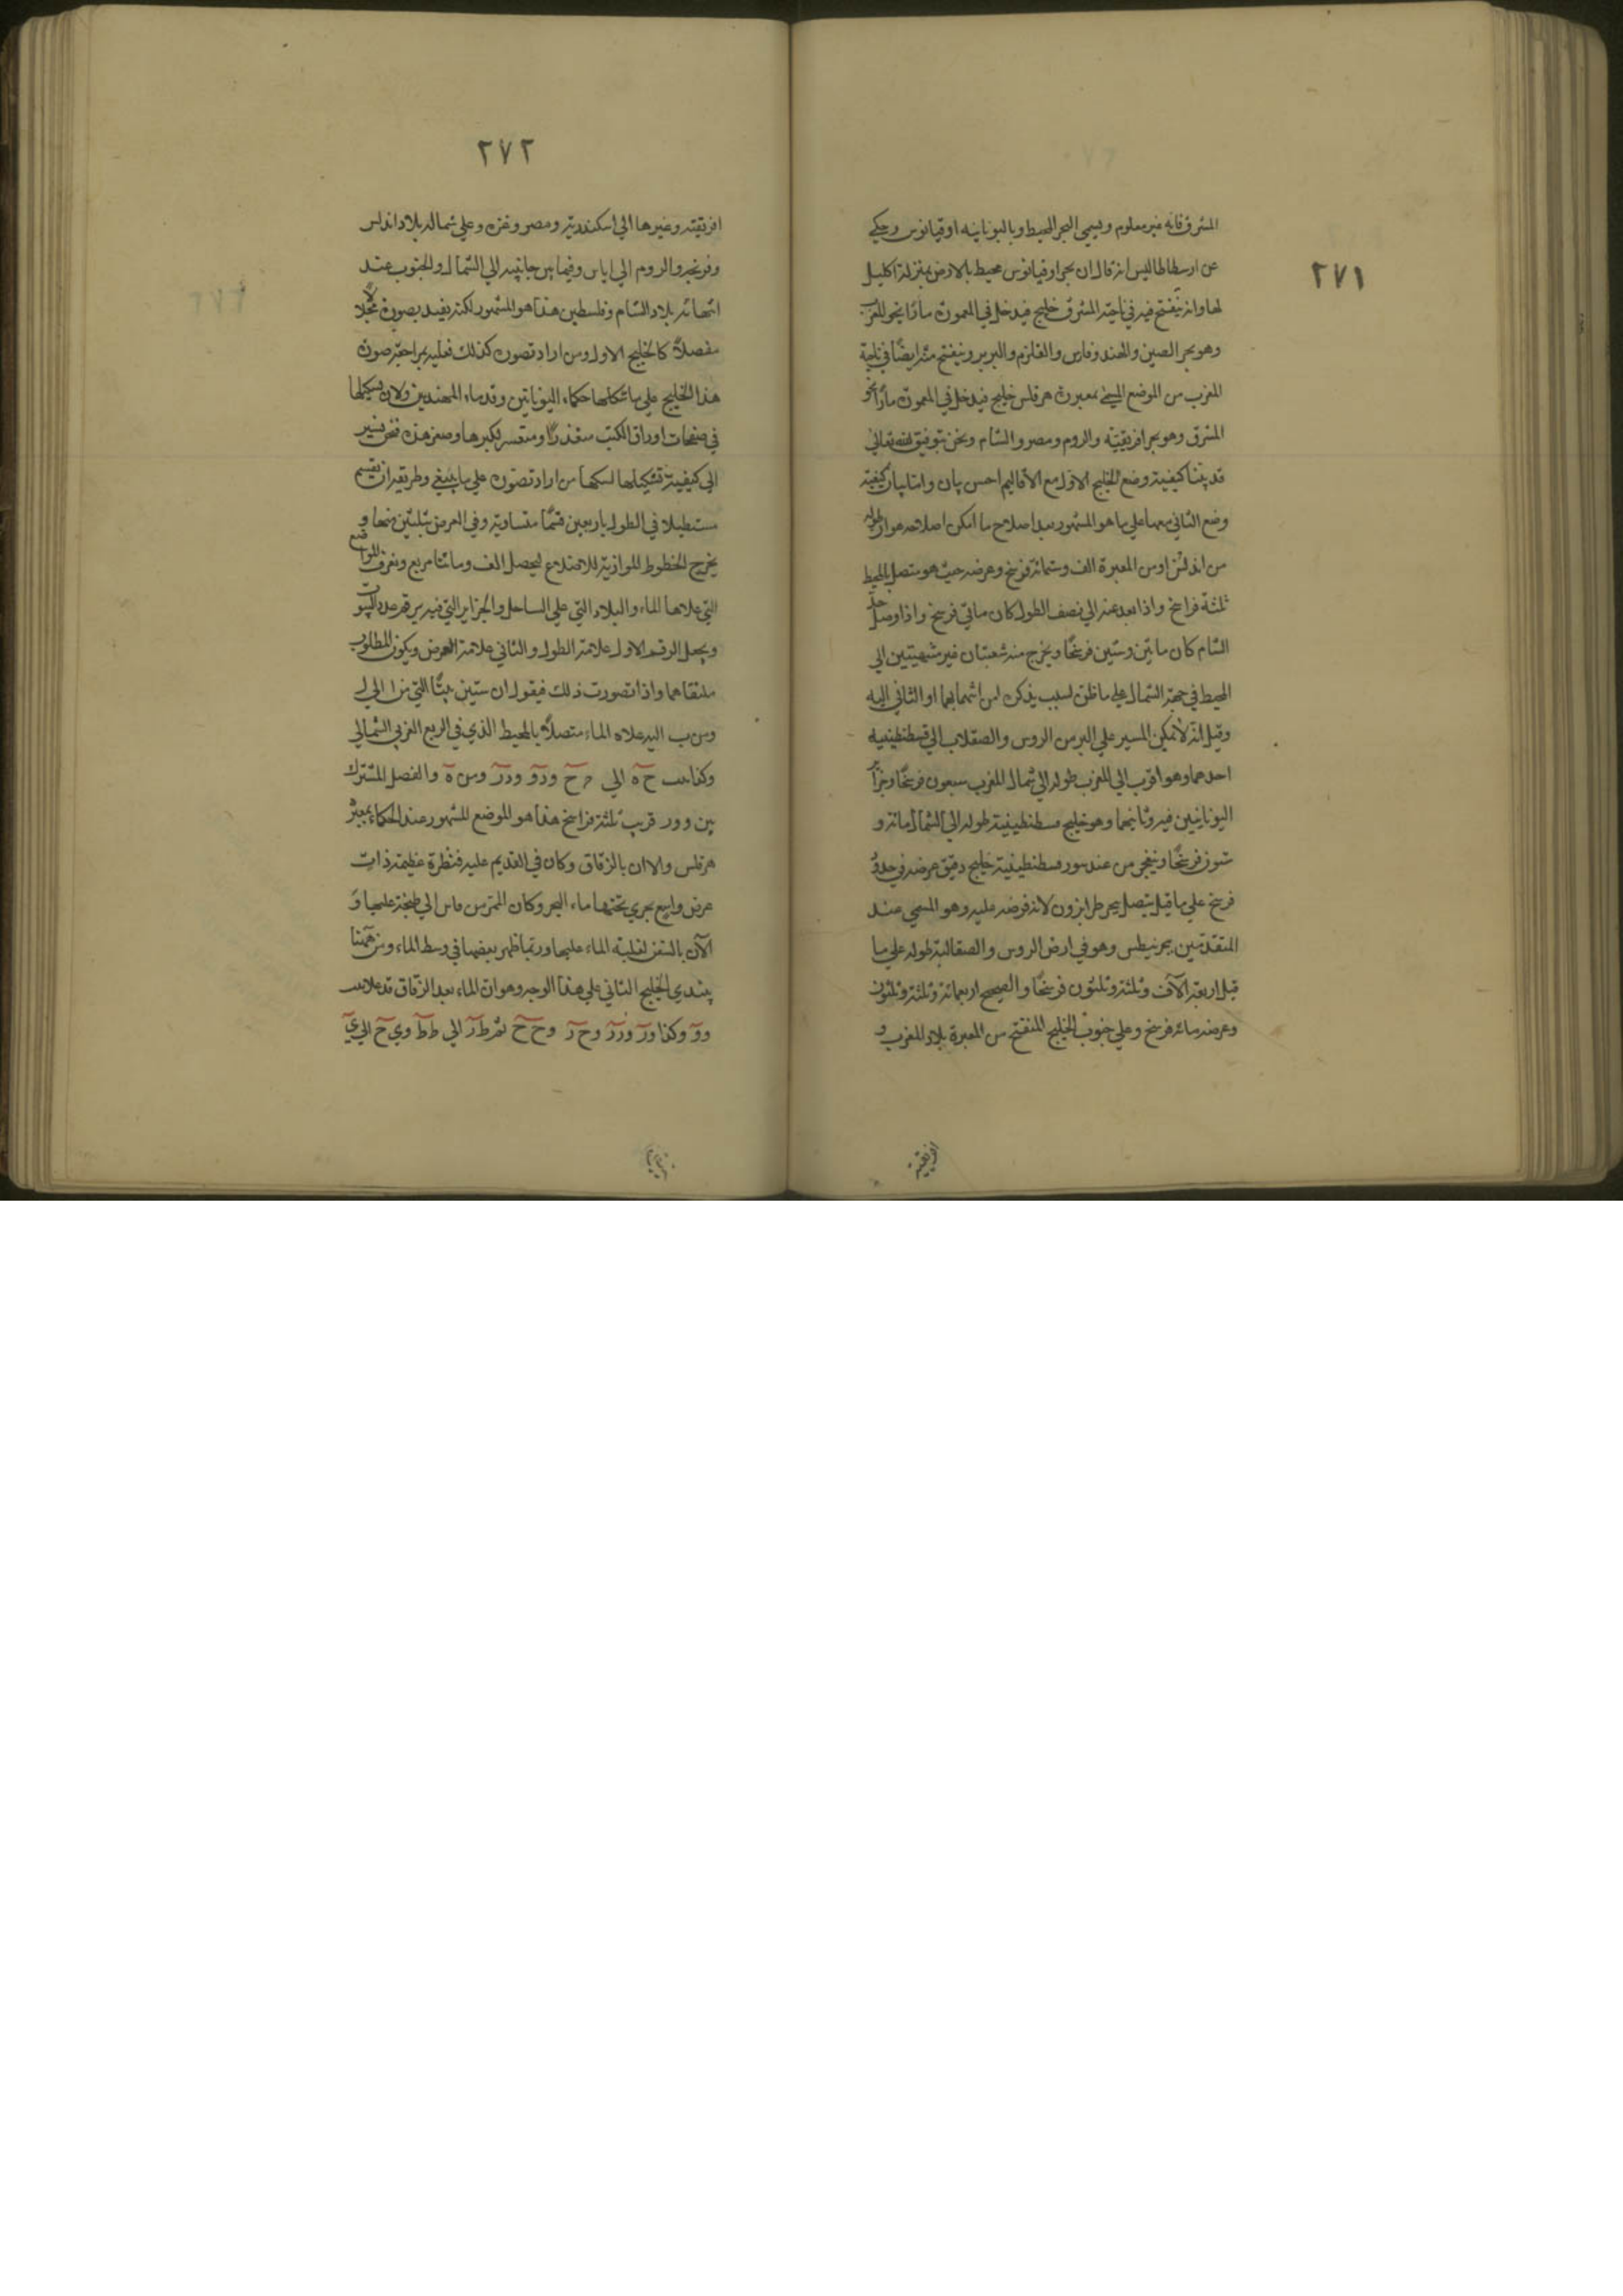 ٢٧١
المشرق فانه غير معلوم ويسمى البحر المحيط وباليونانيه اوقيانوس وحكي
عن ارسطاطاليس انه قال ان بحر اوقيانوس محيط بالارض بمنزلة اكليل
لها وانه ينفتح فيه في ناحية المشرق خليج فيدخل في المعمورة مارّا نحو المغرب
وهو بحر الصين والهند وفارس والقلزم والبربر وينفتح منه ايضًا في ناحية
المغرب من الموضع المسمى بمعبرة هرقلس خليج فيدخل في المعمورة مارّا نحو
المشرق وهو بحر افريقية والروم ومصر والشام ونحن بتوفيق الله تعالى
قد بيّنا كيفية وضع الخليج الاول مع الاقاليم احسن بيان وامّا بيان كيفية
وضع الثاني معها على ما هو المشهور بعد اصلاح ما امكن اصلاحه هو ان طوله
من اندلس اومن المعبرة الف وستمائة فرسخ وعرضه حيث هو متصل بالمحيط
ثلثة فراسخ واذا بعد عنه الى نصف الطول كان مأتي فرسخ واذا وصل
الشام كان مأتين وستين فرسخًا ويخرج منه شعبتان غير منتهيتين الى
المحيط في جهة الشمال على ما ظنّ لسبب يذكره
وقيل انّه لا يمكن المسير على البر من الروس والصقلاب الى قسطنطينيه
احدهما وهو اقرب الى المغرب طوله الى شمال المغرب سبعون فرسخًا
اليونانيين فيه وثانيهما وهو خليج قسطنطينية طوله الى الشمال مائة و
ستون فرسخًا من عند سور قسطنطينية خليج دقيق عرضه في حدود
فرسخ على ما قيل يتصل ببحر طرابزون لانه فرضه عليه وهو المسمى عند
المتقدّمين ببحر نيطس وهو في ارض الروس والصقالبة طوله على ما
قيل اربعة الآف وثلثة وثلثون فرسخًا والصحيح اربعمائة وثلثة وثلثون
وعرضه مائة فرسخ وعلى جنوب الخليج المنفتح من المعبرة بلاد المغرب و
افريقية
٢٧٢
افريقية وغيرها الي اسكندرية ومصر وغزه وعلي شماله بلاد اندلس
وفرنجه والروم الي اياس وفيما بين جانبيه الي الشمال والجنوب عند
انتهائه بلاد الشام وفلسطين هذا هو المشهور لكنه يفيد بصورة مجملا لا
مفصلاً كالخليج الاول ومن اراد تصوره كذلك فعليه بمراجعة صورة
هذا الخليج علي ما شكلها حكماء اليونانيين وقدماء المهندسين ولان تشكيلها
في صفحات اوراق الكتب متعذر او متعسر لكبرها وصغر هذه فنحن نشير
الي كيفية تشكيلها ليشكلها من اراد تصوره علي ما ينبغي وطريقه ان يقسم
مستطيلا في الطول باربعين قسمًا متساوية وفي العرض بثلثين منها و
يخرج الخطوط الموازية للاضلاع ليحصل الف ومائتا مربع وتعرف المواضع
التي علاها الماء والبلاد التي علي الساحل والجزاير التي فيه برقم عدد البيوت
ويجعل الرقم الاول علامة الطول والثاني علامة العرض ويكون المطلوب
ملتقاهما واذا تصورت ذلك فيقول ان ستين بيتًا التي من ا الي ل
ومن ب اليه علاه الماء متصلاً بالمحيط الذي في الربع الغربي الشمالي
وكذا من ح ه الي م ح ودو ودر ومن ه والفصل المشترك
بين و ور قريب ثلثة فراسخ هذا هو الموضع المشهور عند الحكماء بمعبرة
هرقلس والان بالزقاق وكان في القديم عليه قنطرة عظيمة ذات
عرض واسع يجري تحتها ماء البحر وكان الممر من فاس الي طنجة عليها و
الآن بالسفن لغلبة الماء عليها وربما ظهر بعضها في وسط الماء ومن هٓهنا
يبتدي الخليج الثاني علي هذا الوجه وهو ان الماء بعد الزقاق قد علا من
وو وكذا ور وزر وح ر وح ح ثم ط ر الي ط ط وي ح الي ي ي